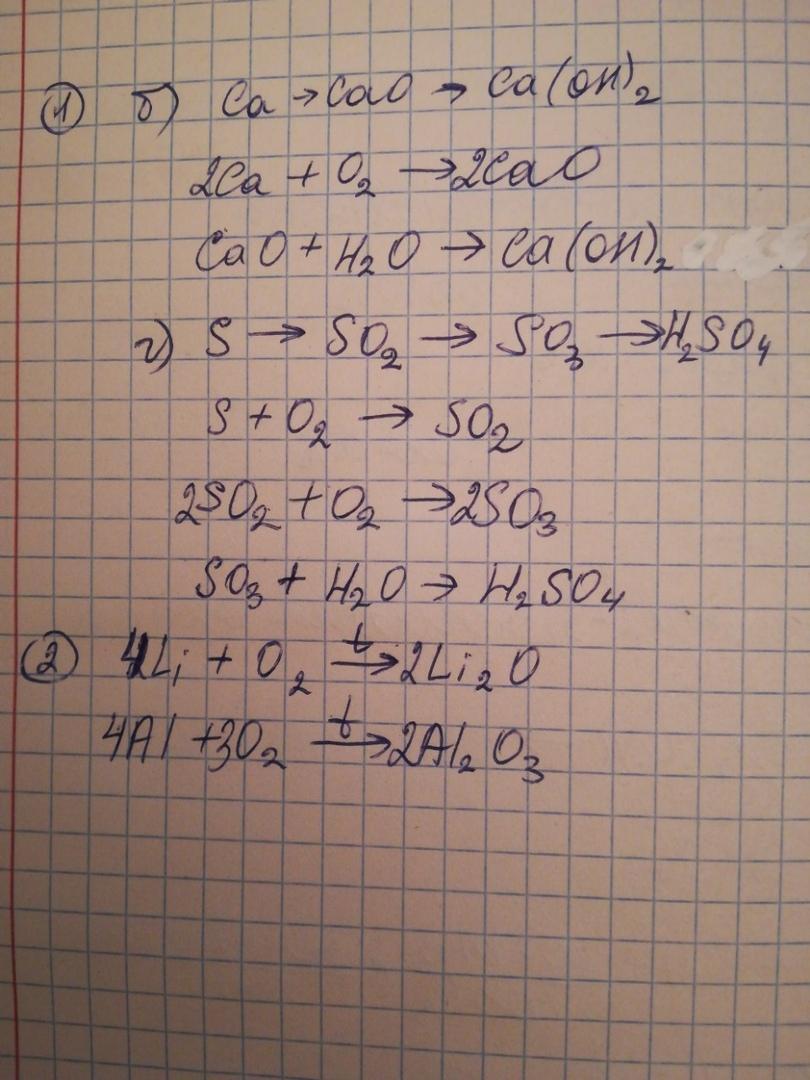 ① б) Ca → CaO → Ca(OH)₂
2Ca + O₂ → 2CaO
CaO + H₂O → Ca(OH)₂
г) S → SO₂ → SO₃ → H₂SO₄
S + O₂ → SO₂
2SO₂ + O₂ → 2SO₃
SO₃ + H₂O → H₂SO₄
② 4Li + O₂ →ᵗ 2Li₂O
4Al + 3O₂ →ᵗ 2Al₂O₃